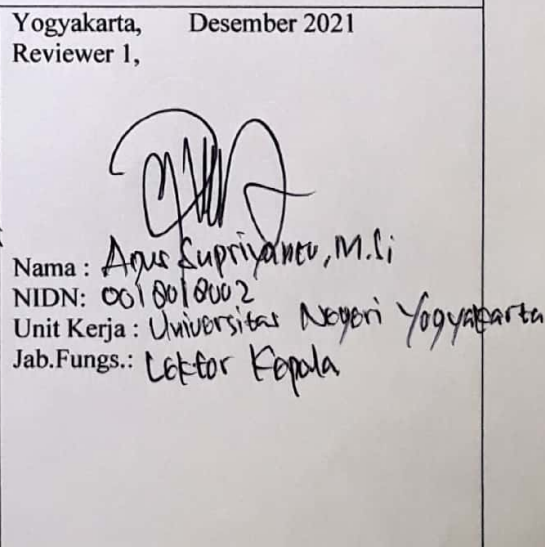 Yogyakarta, Desember 2021
Reviewer 1,
Nama : Agus Supriyanto, M.Si
NIDN: 0018018002
Unit Kerja : Universitas Negeri Yogyakarta
Jab.Fungs.: Lektor Kepala